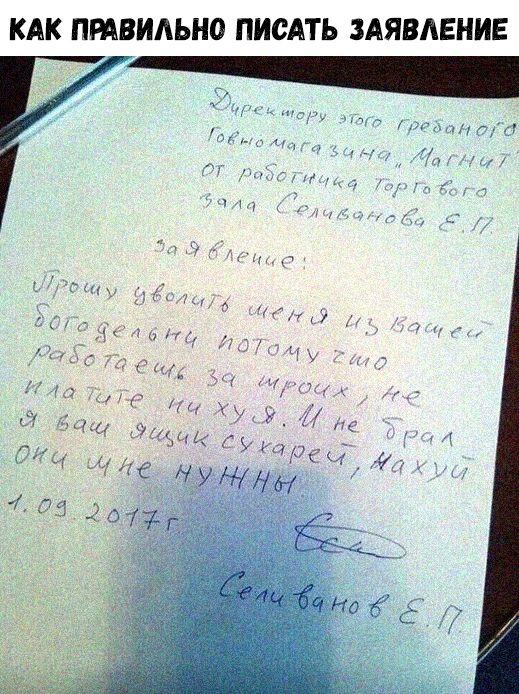 КАК ПРАВИЛЬНО ПИСАТЬ ЗАЯВЛЕНИЕ
Директору этого гребаного
говномагазина „Магнит"
от работника торгового
зала Селиванова Е.П.
заявление:
Прошу уволить меня из вашей
богодельни потому что
работаешь за троих, не
платите ни хуя. И не брал
я ваш ящик сухарей, нахуй
они мне нужны
1.09.2017г
Селиванов Е.П.